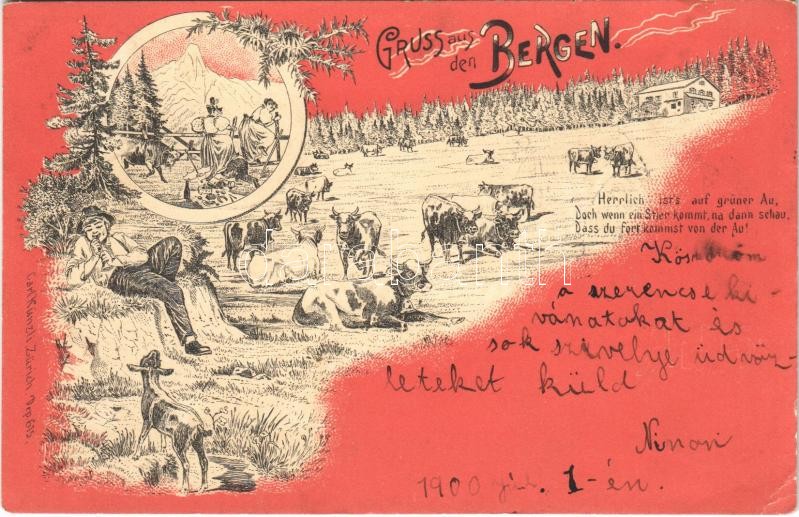 GRUSS aus
den BERGEN.
Herrlich ist's auf grüner Au,
Doch wenn ein Stier kommt, na dann schau,
Dass du fort kommst von der Au!
a szerencse ki-
vánatokat és
sok szivelye üdvöz-
leteket küld
Ninon
1900 1-én.
Carl Künzli, Zürich